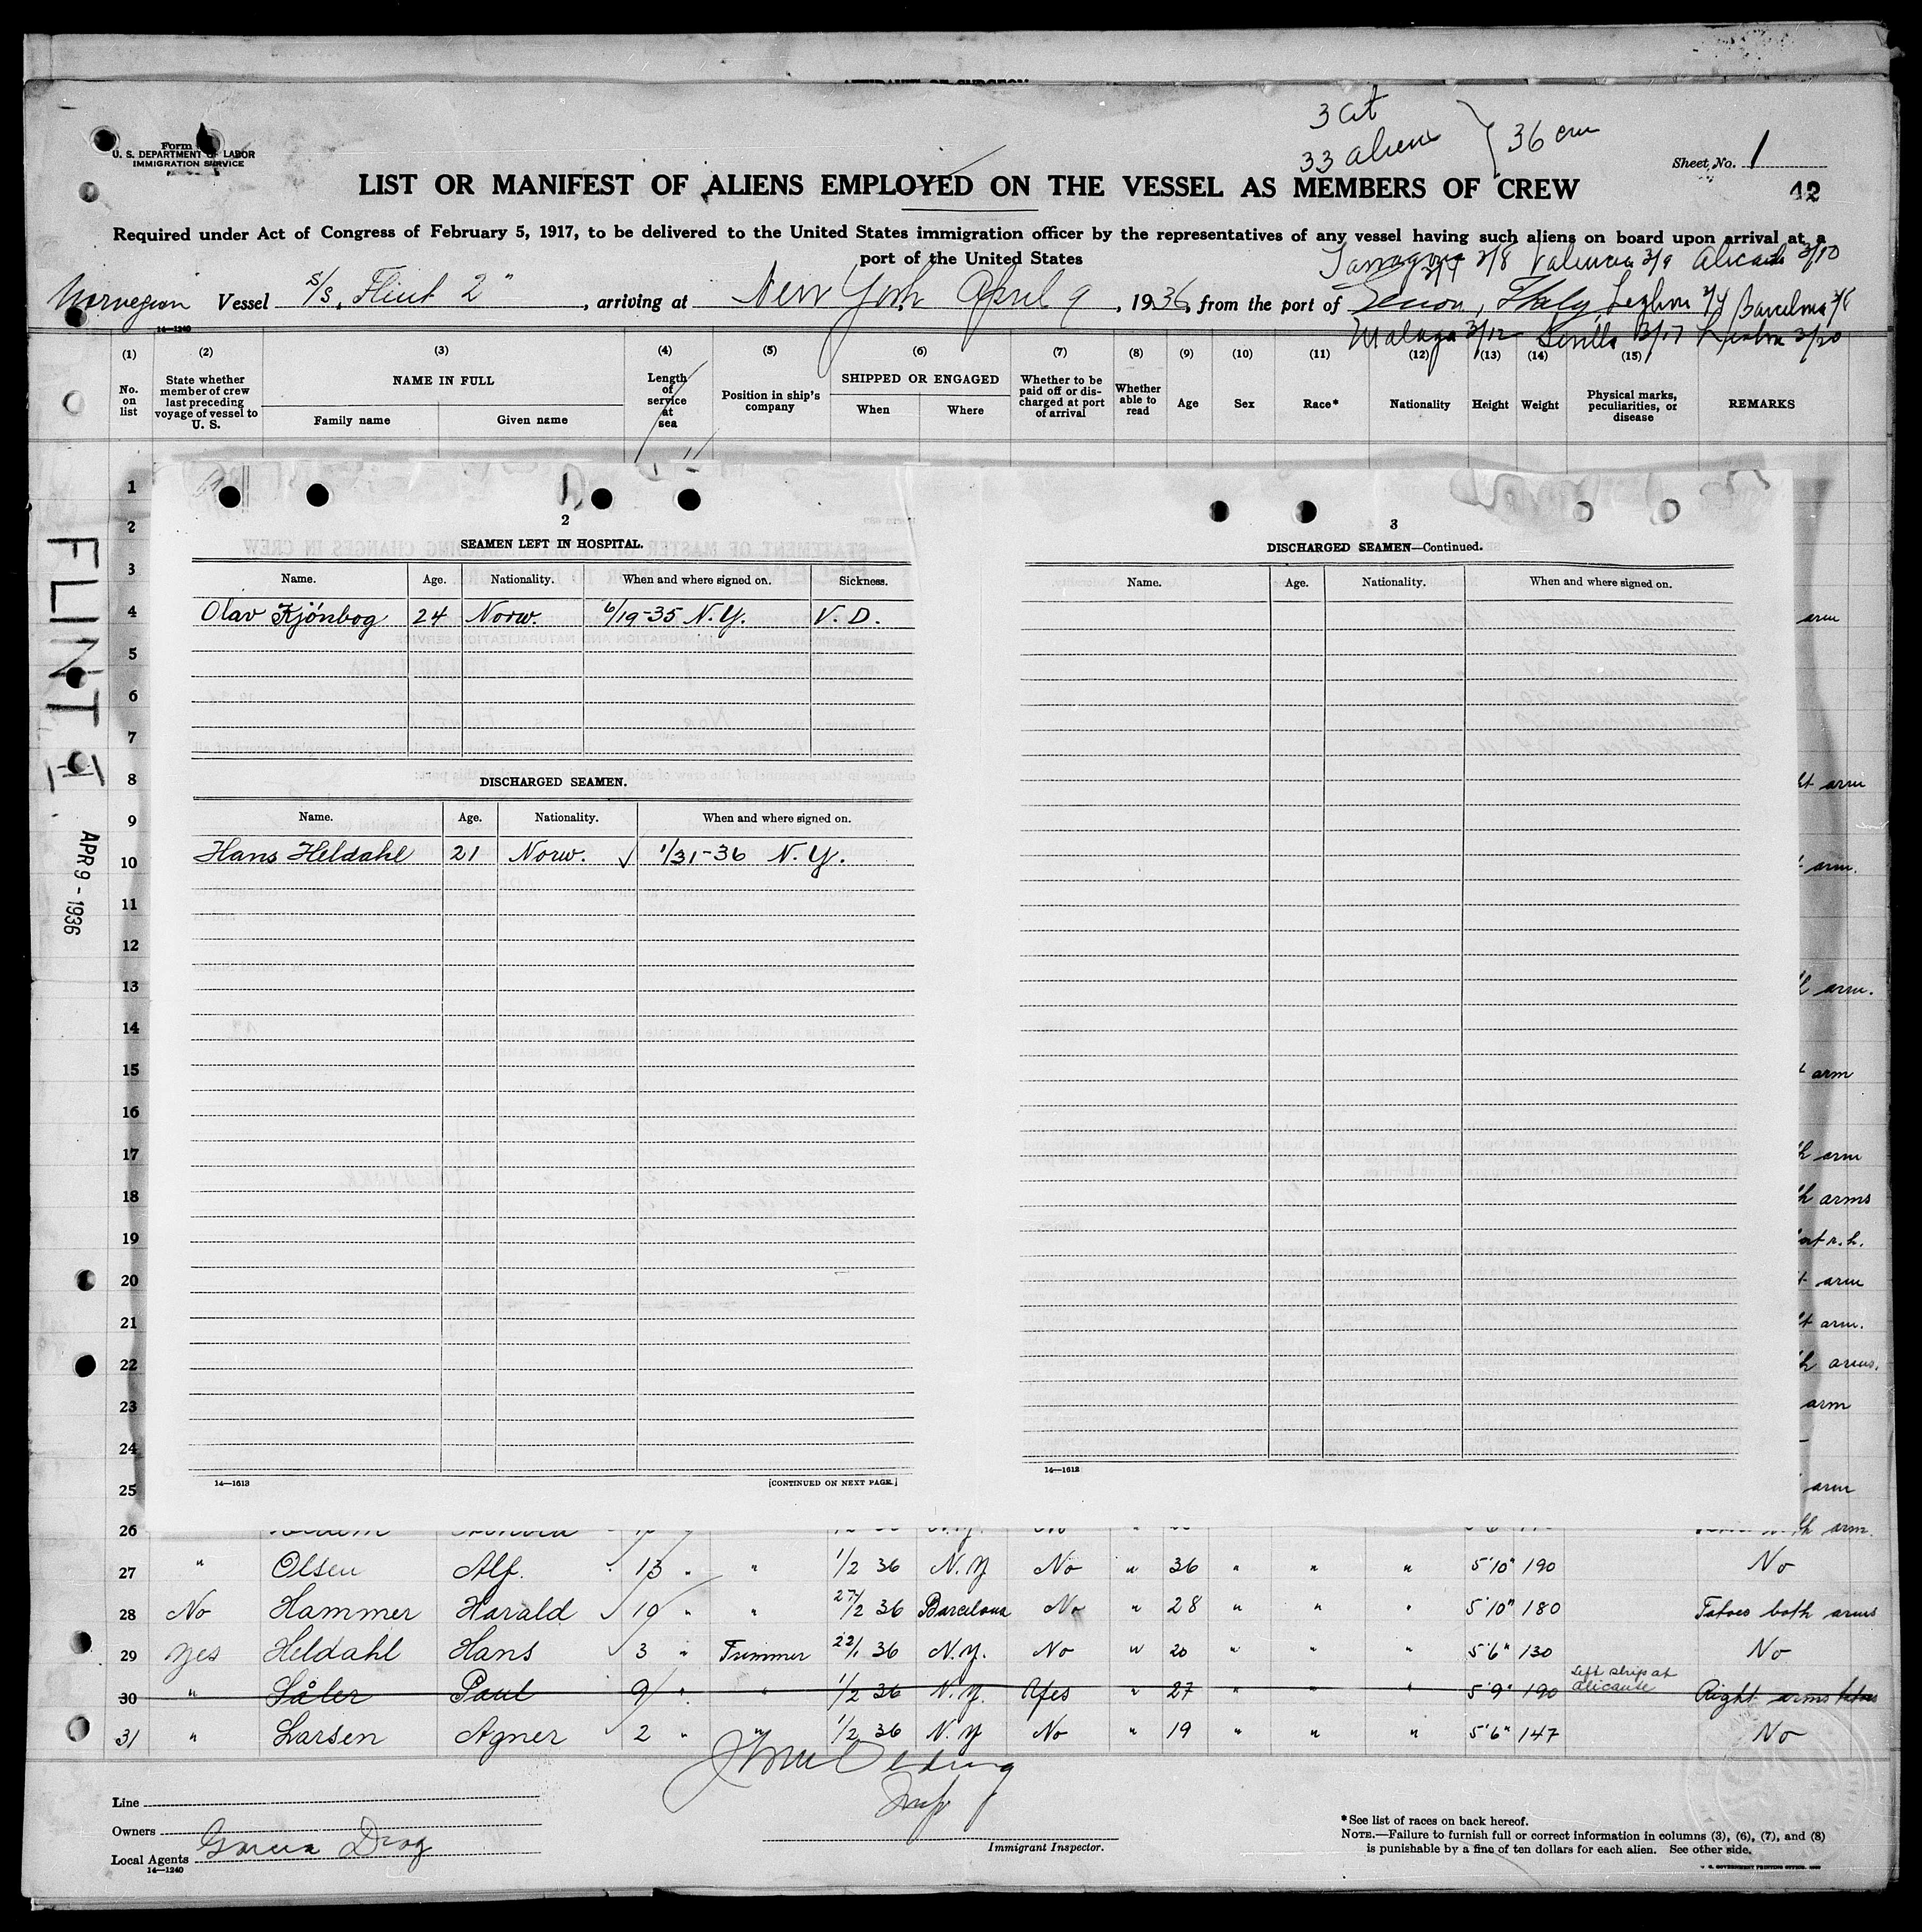 3 cit
33 aliens } 36 crew
Form
U. S. DEPARTMENT OF LABOR
IMMIGRATION SERVICE
Sheet No. 1
42
LIST OR MANIFEST OF ALIENS EMPLOYED ON THE VESSEL AS MEMBERS OF CREW
Required under Act of Congress of February 5, 1917, to be delivered to the United States immigration officer by the representatives of any vessel having such aliens on board upon arrival at a
port of the United States
Tarragona 3/8 Valencia 3/9 Alicante 3/10
Norwegian Vessel S/S. Flint 2", arriving at New York April 9, 1936, from the port of Genoa, Italy, Barcelona
Malaga 3/12 Sevilla 3/17 Lisbon 3/20
14—1240
(1) (2) (3) (4) (5) (6) (7) (8) (9) (10) (11) (12) (13) (14) (15)
No. on list
State whether member of crew last preceding voyage of vessel to U. S.
NAME IN FULL
Family name Given name
Length of service at sea
Position in ship's company
SHIPPED OR ENGAGED
When Where
Whether to be paid off or discharged at port of arrival
Whether able to read
Age Sex Race* Nationality Height Weight
Physical marks, peculiarities, or disease
REMARKS
FLINT II
APR 9 - 1936
1
2
3
4 arm
5
6
7
8 arm
9
10 arm.
11
12
13 arm.
14
15 arm
16
17 arm
18 arms
19 r.h.
20 arm
21 arm.
22 arms.
23 arm
24
25 arm
26 arm.
2
SEAMEN LEFT IN HOSPITAL.
Name. Age. Nationality. When and where signed on. Sickness.
Olav Kjönbog 24 Norw. 6/19-35 N.Y. V.D.
DISCHARGED SEAMEN.
Name. Age. Nationality. When and where signed on.
Hans Heldahl 21 Norw. ✓ 1/31-36 N.Y.
14—1613 [CONTINUED ON NEXT PAGE.]
3
DISCHARGED SEAMEN—Continued.
Name. Age. Nationality. When and where signed on.
14—1612
27 " Olsen Alf. 13 " " 1/2 36 N.Y No " 36 " " " 5'10" 190 No
28 No Hammer Harald ✓ 10 " " 27/2 36 Barcelona No " 28 " " " 5'10" 180 Tatoes both arms
29 Yes Heldahl Hans ✓ 3 " Trimmer 22/1 36 N.Y. No " 20 " " " 5'6" 130 No
30 " Såler Paul 9 " " 1/2 36 N.Y. Yes " 27 " " " 5'9" 190 Left ship at Alicante Right arms tatoes
31 " Larsen Agner 2 " " 1/2 36 N.Y No " 19 " " " 5'6" 147 No
Line
Owners
Local Agents Garcia Diaz
14—1240
Insp
Immigrant Inspector.
*See list of races on back hereof.
NOTE.—Failure to furnish full or correct information in columns (3), (6), (7), and (8)
is punishable by a fine of ten dollars for each alien. See other side.
U. S. GOVERNMENT PRINTING OFFICE